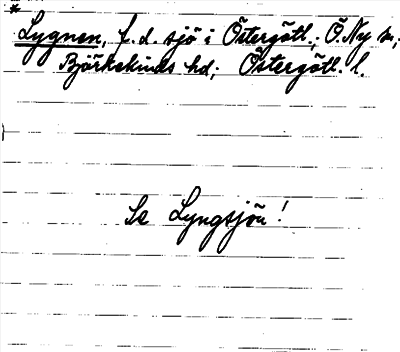 * Lygnen, f.d. sjö i Östergötl.; Ö. Ny sn;
Björkekinds hd; Östergötl. l.
Se Lyngsjön!